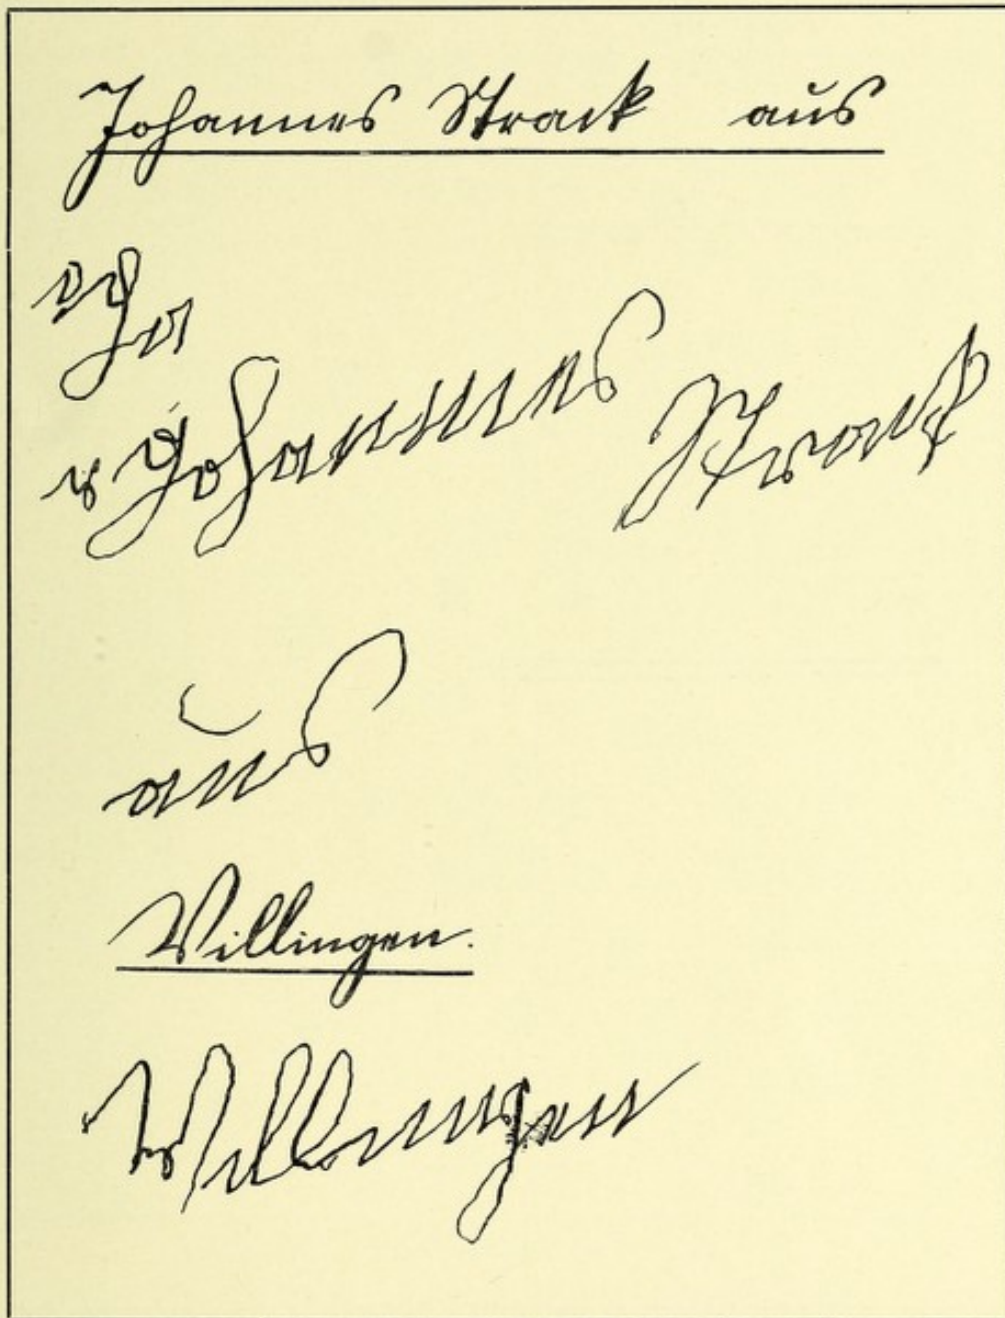 Johannes Strack aus
Joha
Johannes Strack
aus
Willingen.
Willingen